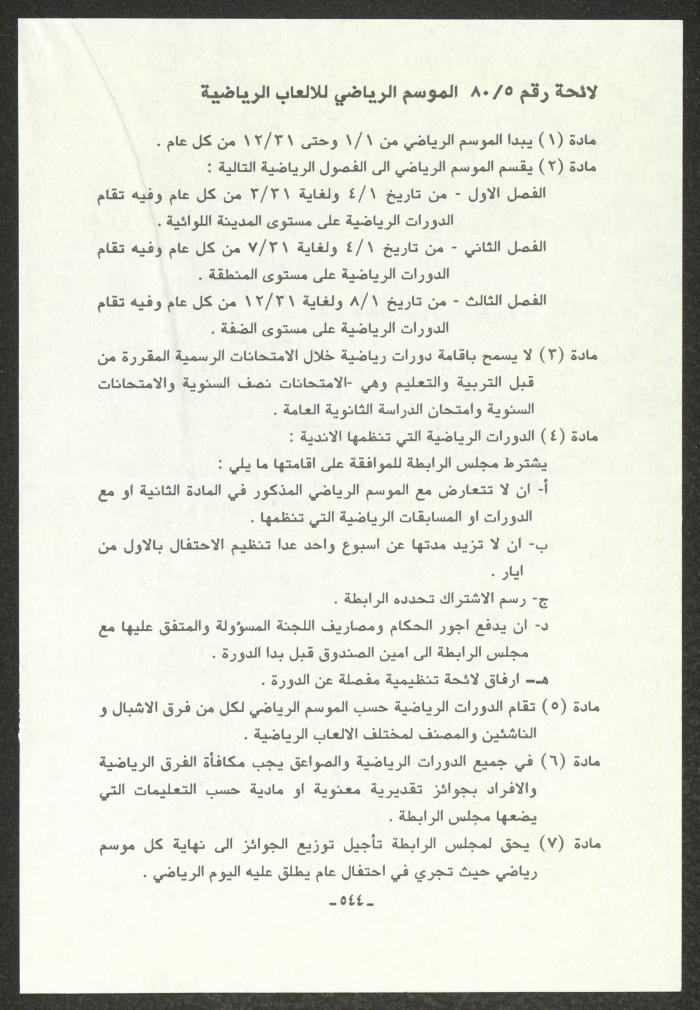 لائحة رقم ٨٠/٥ الموسم الرياضي للالعاب الرياضية
مادة (١) يبدا الموسم الرياضي من ١/١ وحتى ١٢/٣١ من كل عام .
مادة (٢) يقسم الموسم الرياضي الى الفصول الرياضية التالية :
الفصل الاول - من تاريخ ٤/١ ولغاية ٣/٣١ من كل عام وفيه تقام
الدورات الرياضية على مستوى المدينة اللوائية .
الفصل الثاني - من تاريخ ٤/١ ولغاية ٧/٣١ من كل عام وفيه تقام
الدورات الرياضية على مستوى المنطقة .
الفصل الثالث - من تاريخ ٨/١ ولغاية ١٢/٣١ من كل عام وفيه تقام
الدورات الرياضية على مستوى الضفة .
مادة (٣) لا يسمح باقامة دورات رياضية خلال الامتحانات الرسمية المقررة من
قبل التربية والتعليم وهي -الامتحانات نصف السنوية والامتحانات
السنوية وامتحان الدراسة الثانوية العامة .
مادة (٤) الدورات الرياضية التي تنظمها الاندية :
يشترط مجلس الرابطة للموافقة على اقامتها ما يلي :
أ- ان لا تتعارض مع الموسم الرياضي المذكور في المادة الثانية او مع
الدورات او المسابقات الرياضية التي تنظمها .
ب- ان لا تزيد مدتها عن اسبوع واحد عدا تنظيم الاحتفال بالاول من
ايار .
ج- رسم الاشتراك تحدده الرابطة .
د- ان يدفع اجور الحكام ومصاريف اللجنة المسؤولة والمتفق عليها مع
مجلس الرابطة الى امين الصندوق قبل بدا الدورة .
هـ- ارفاق لائحة تنظيمية مفصلة عن الدورة .
مادة (٥) تقام الدورات الرياضية حسب الموسم الرياضي لكل من فرق الاشبال و
الناشئين والمصنف لمختلف الالعاب الرياضية .
مادة (٦) في جميع الدورات الرياضية والصواعق يجب مكافأة الفرق الرياضية
والافراد بجوائز تقديرية معنوية او مادية حسب التعليمات التي
يضعها مجلس الرابطة .
مادة (٧) يحق لمجلس الرابطة تأجيل توزيع الجوائز الى نهاية كل موسم
رياضي حيث تجري في احتفال عام يطلق عليه اليوم الرياضي .
-٥٤٤-